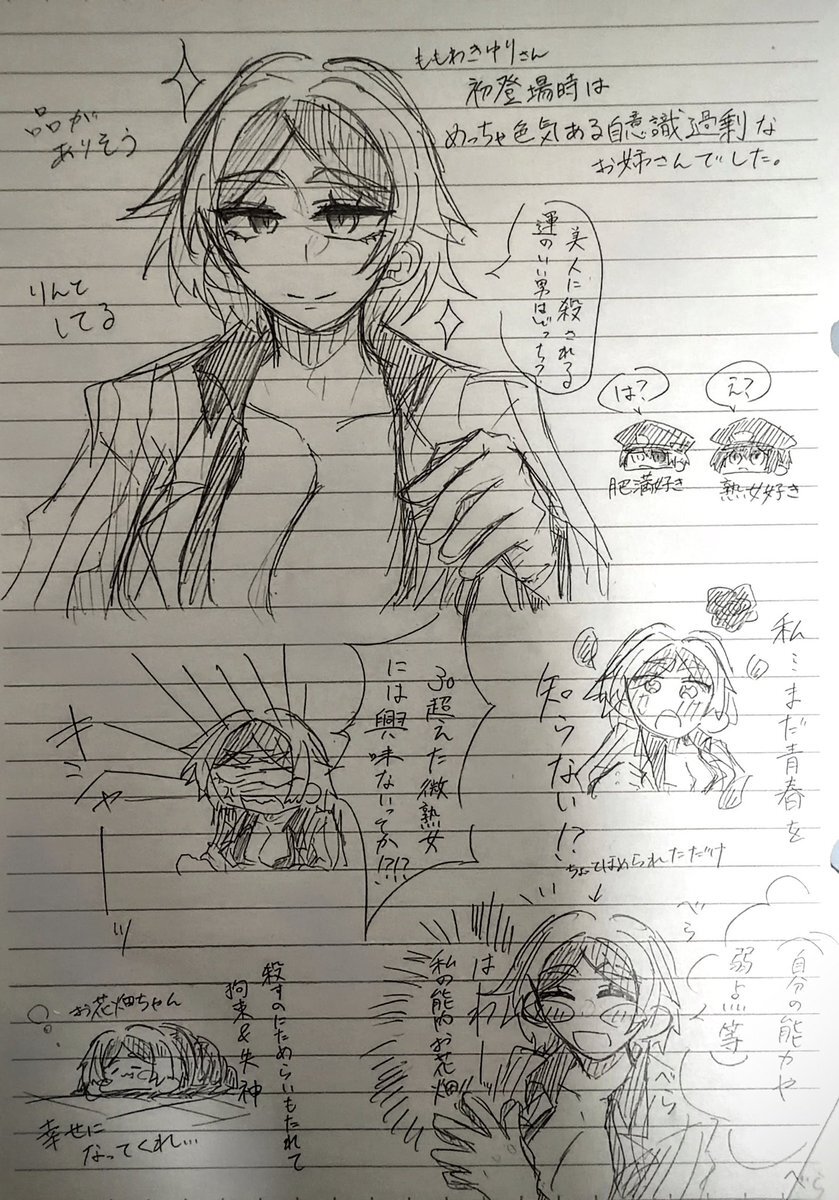 ももわきゆりさん
初登場時は
めっちゃ色気ある自意識過剰な
お姉さんでした。
品が
ありそう
りんと
してる
美人に殺される
運のいい男はどっち?
は?
え?
肥満好き
熟女好き
私…まだ青春を
知らない!?
30超えた微熟女
には興味ないってか!?!?
キシャーーッ
ちょっとほめられただけ
はわーー
私の能内お花畑
べらべらべら
(自分の能力や
弱点等)
べら
殺すのにためらいもたれて
拘束&失神
お花畑ちゃん
幸せに
なってくれ…